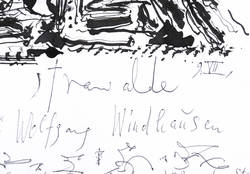 strawalde 9.VII.
Wolfgang Windhausen